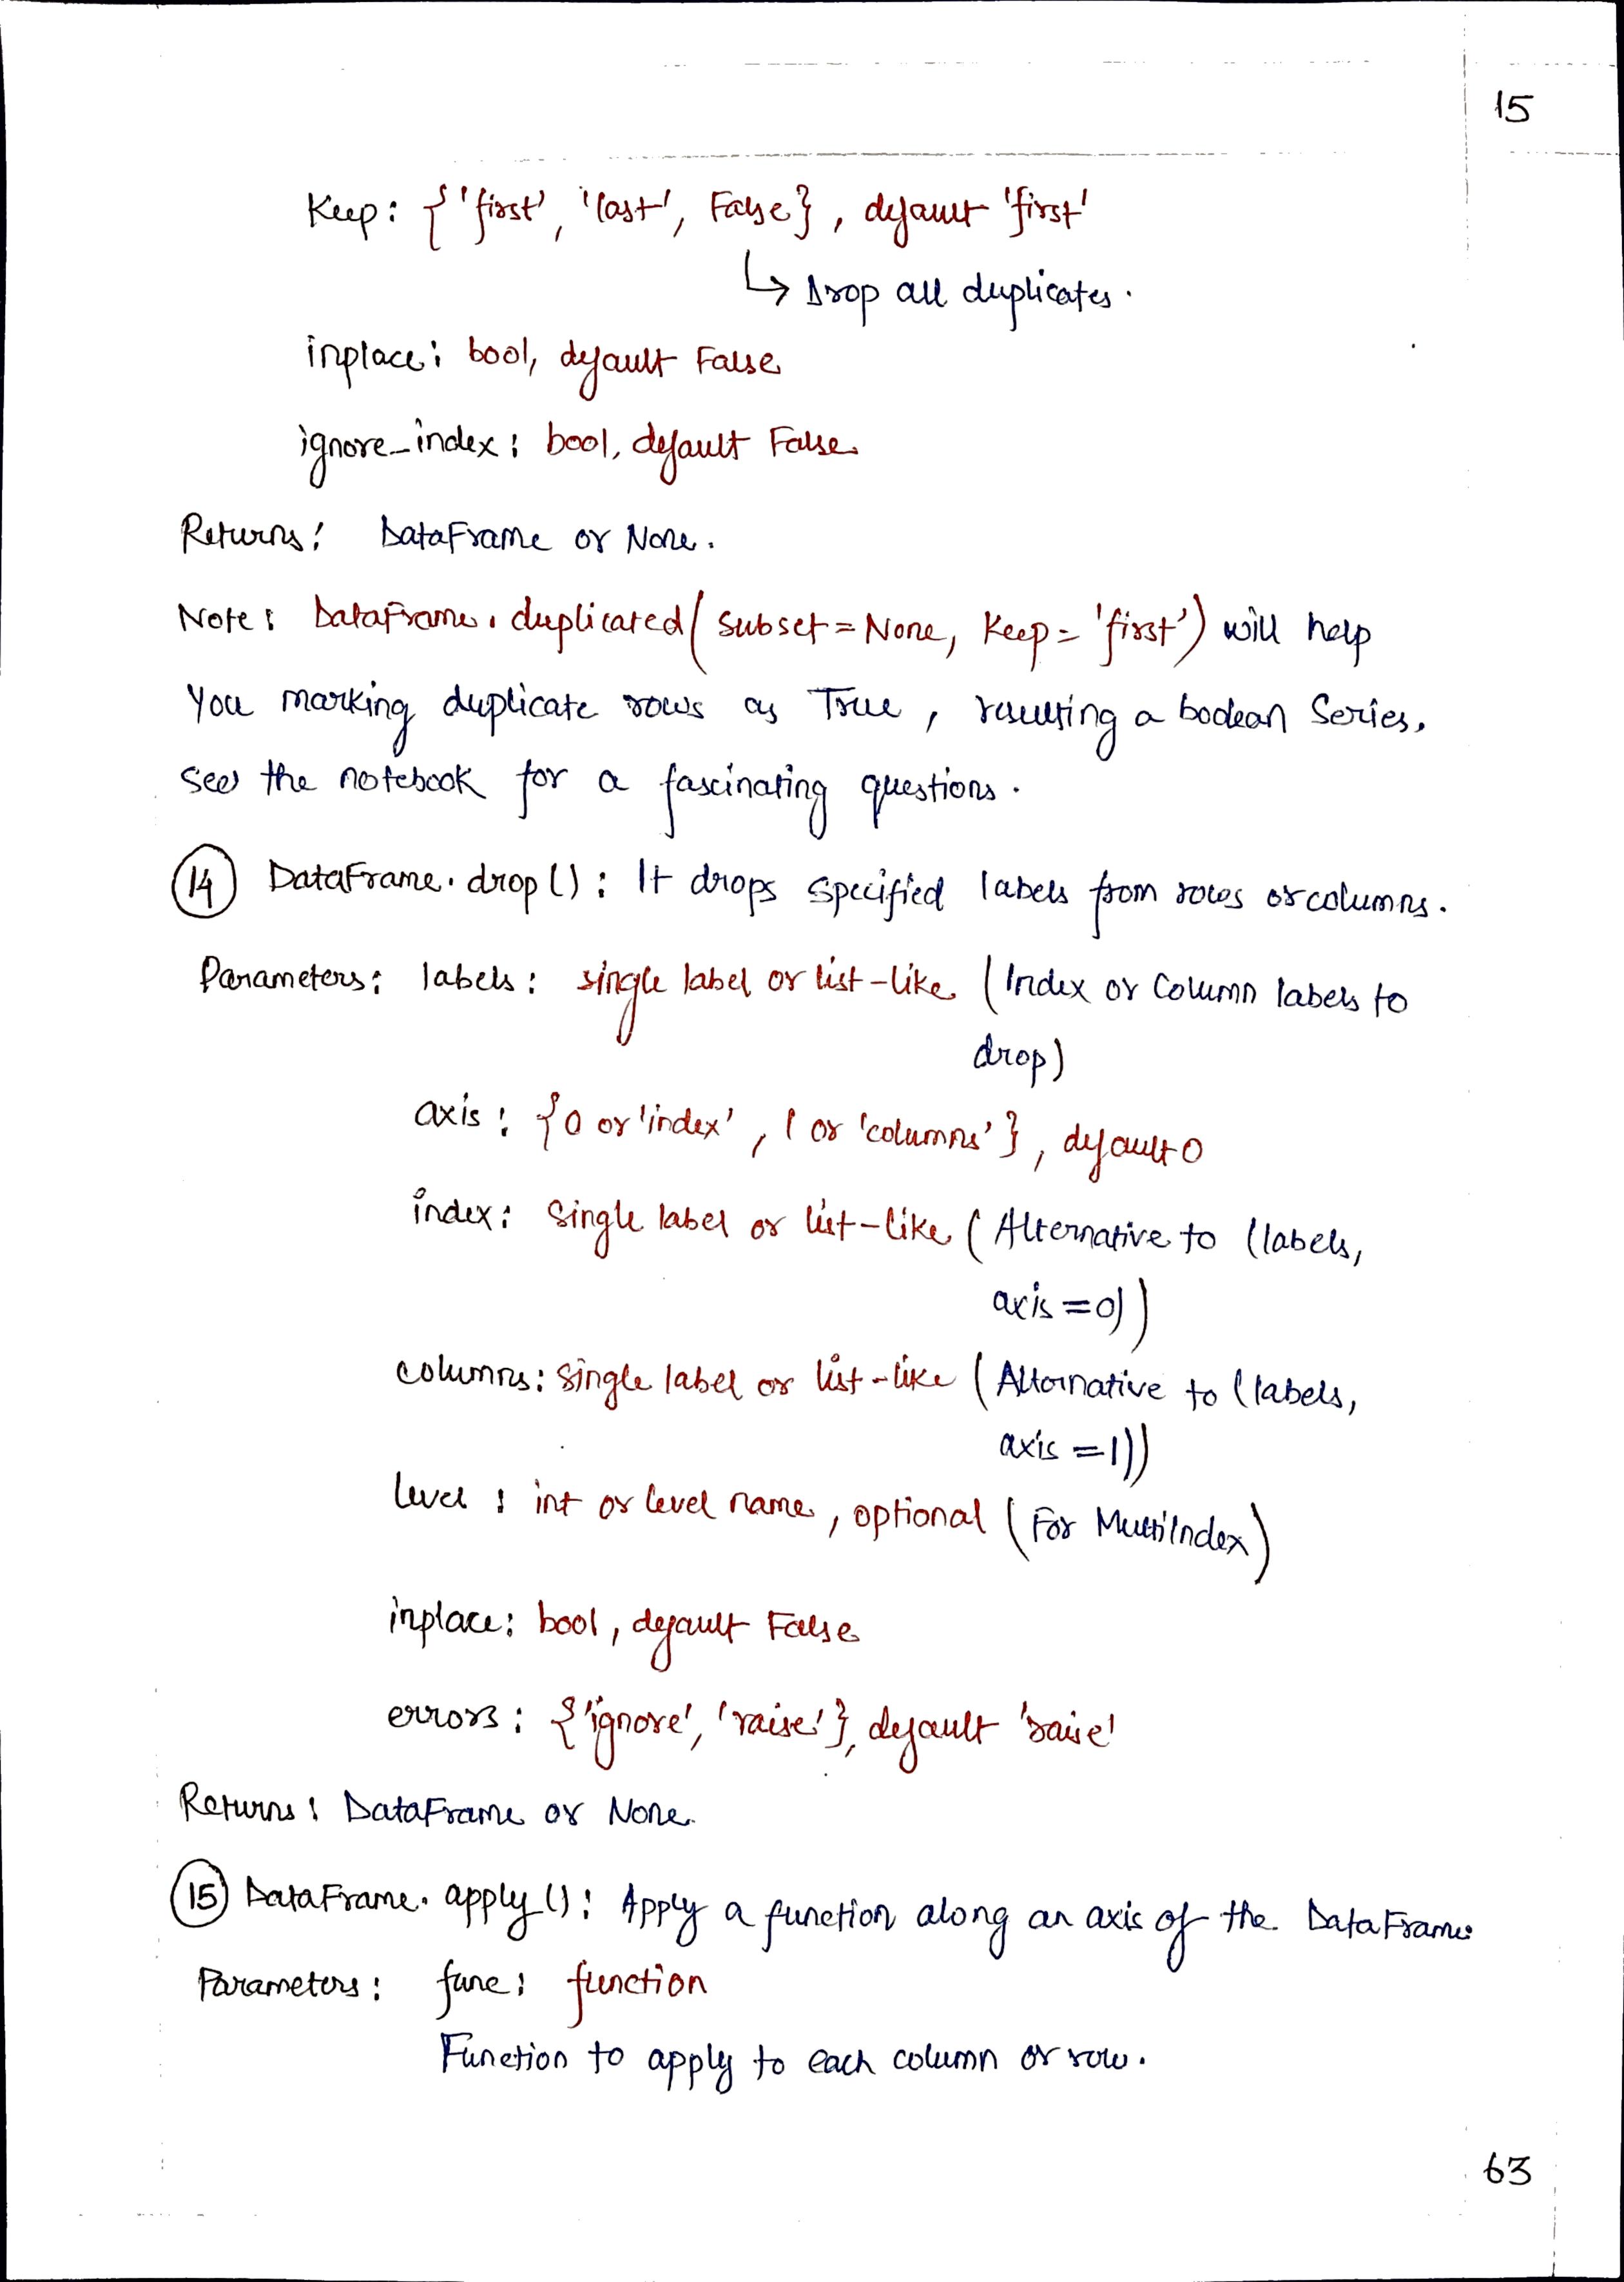 15
Keep: {'first', 'last', False}, default 'first'
↳ Drop all duplicates.
inplace: bool, default False
ignore_index: bool, default False
Returns: DataFrame or None.
Note: DataFrame.duplicated(subset=None, Keep='first') will help
you marking duplicate rows as True, resulting a boolean Series.
See the notebook for a fascinating questions.
14 DataFrame.drop(): It drops specified labels from rows or columns.
Parameters: labels: single label or list-like (Index or Column labels to
drop)
axis: {0 or 'index', 1 or 'columns'}, default 0
index: Single label or list-like (Alternative to (labels,
axis=0))
columns: Single label or list-like (Alternative to (labels,
axis=1))
level: int or level name, optional (For MultiIndex)
inplace: bool, default False
errors: {'ignore', 'raise'}, default 'raise'
Returns: DataFrame or None.
15 DataFrame.apply(): Apply a function along an axis of the DataFrame.
Parameters: func: function
Function to apply to each column or row.
63